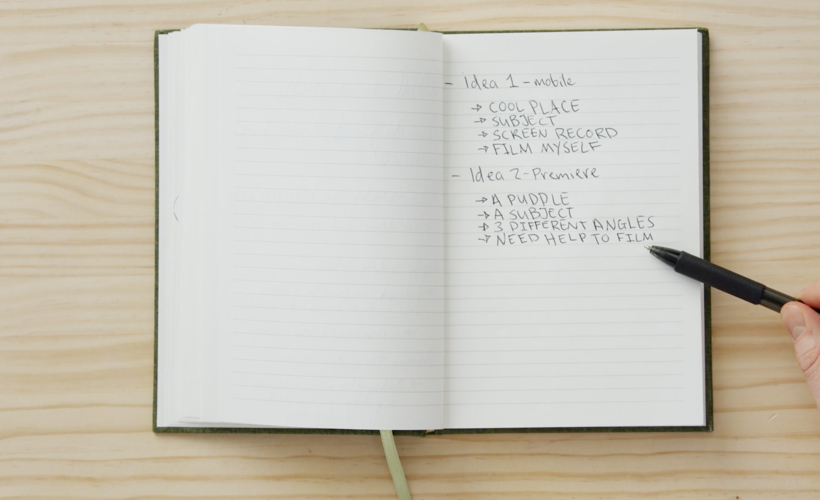 - Idea 1 - mobile
→ COOL PLACE
→ SUBJECT
→ SCREEN RECORD
→ FILM MYSELF
- Idea 2 - Premiere
→ A PUDDLE
→ A SUBJECT
→ 3 DIFFERENT ANGLES
→ NEED HELP TO FILM